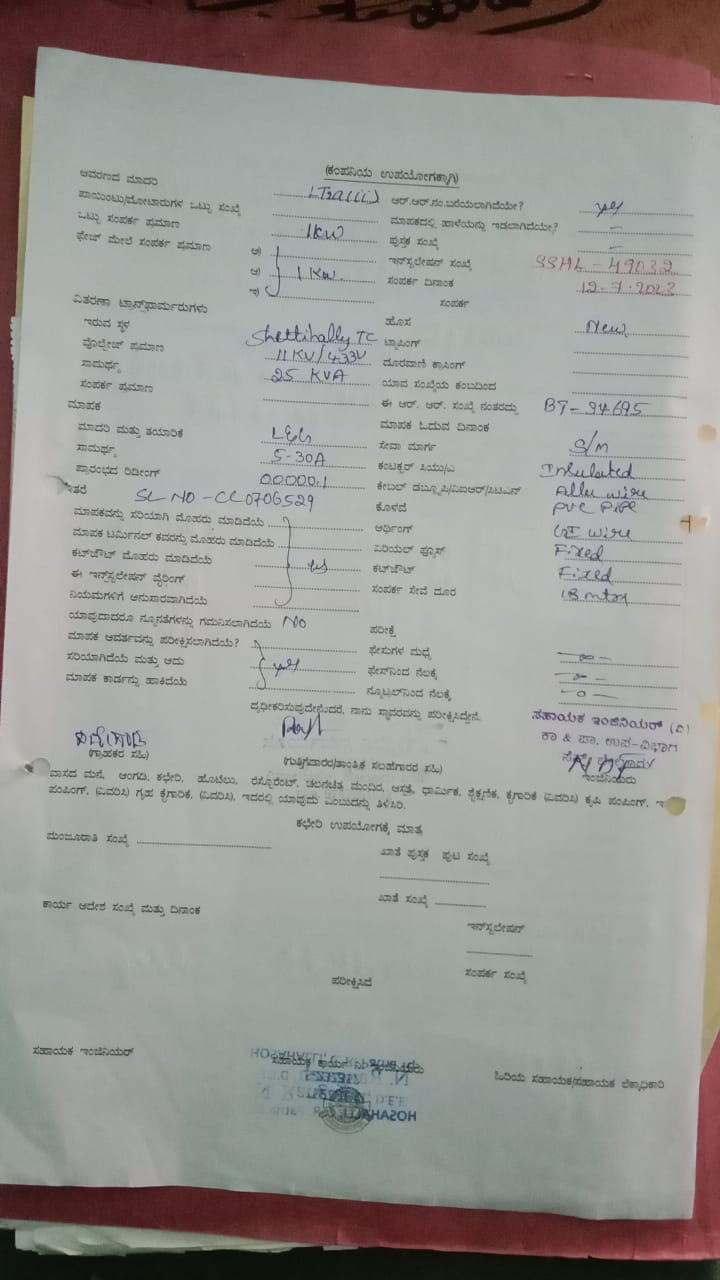 (ಕಂಪನಿಯ ಉಪಯೋಗಕ್ಕಾಗಿ)
ಆವರಣದ ಮಾದರಿ
ಪಾಯಿಂಟು/ಮೋಟಾರುಗಳ ಒಟ್ಟು ಸಂಖ್ಯೆ ಆರ್.ಆರ್.ನಂ.ಬರೆಯಲಾಗಿದೆಯೇ? yes
ಒಟ್ಟು ಸಂಪರ್ಕ ಪ್ರಮಾಣ 1KW ಮಾಪಕದಲ್ಲಿ ಹಾಳೆಯನ್ನು ಇಡಲಾಗಿದೆಯೇ? –
ಫೇಜ್ ಮೇಲೆ ಸಂಪರ್ಕ ಪ್ರಮಾಣ ಪುಸ್ತಕ ಸಂಖ್ಯೆ –
ಅ) ಇನ್‌ಸ್ಟಲೇಷನ್ ಸಂಖ್ಯೆ SSHL-49032
ಆ) 1 KW. ಸಂಪರ್ಕ ದಿನಾಂಕ 12-7-2023
ಇ) ಸಂಪರ್ಕ
ವಿತರಣಾ ಟ್ರಾನ್ಸ್‌ಫಾರ್ಮರುಗಳು
ಇರುವ ಸ್ಥಳ Shettihally TC ಹೊಸ New
ವೊಲ್ಟೇಜ್ ಪ್ರಮಾಣ 11KV/433V ಟ್ಯಾಪಿಂಗ್
ಸಾಮರ್ಥ್ಯ 25 KVA ದೂರವಾಣಿ ಕ್ರಾಸಿಂಗ್
ಸಂಪರ್ಕ ಪ್ರಮಾಣ ಯಾವ ಸಂಖ್ಯೆಯ ಕಂಬದಿಂದ
ಮಾಪಕ ಈ ಆರ್. ಆರ್. ಸಂಖ್ಯೆ ನಂತರದ್ದು BT-94695
ಮಾದರಿ ಮತ್ತು ತಯಾರಿಕೆ L&G ಮಾಪಕ ಓದುವ ದಿನಾಂಕ
ಸಾಮರ್ಥ್ಯ 5-30A ಸೇವಾ ಮಾರ್ಗ S/M
ಪ್ರಾರಂಭದ ರಿಡೀಂಗ್ 00000.1 ಕಂಟಕ್ಟರ್ ಸಿಯು/ಎ Insulated
ಇತರೆ SL NO-CC0706529 ಕೇಬಲ್ ಡಬ್ಲ್ಯೂಪಿ/ವಿಐಆರ್/ಸಿಟಿಎಸ್ Allu wire
ಮಾಪಕವನ್ನು ಸರಿಯಾಗಿ ಮೊಹರು ಮಾಡಿದೆಯೆ ಕೊಳವೆ PVC PIPE
ಮಾಪಕ ಟರ್ಮಿನಲ್ ಕವರನ್ನು ಮೊಹರು ಮಾಡಿದೆಯೆ ಆರ್ಥಿಂಗ್ GI wire
ಕಟ್‌ಔಟ್ ಮೊಹರು ಮಾಡಿದೆಯೆ yes ಏರಿಯಲ್ ಫ್ಯೂಸ್ Fixed
ಈ ಇನ್‌ಸ್ಟಲೇಷನ್ ವೈರಿಂಗ್ ಕಟ್‌ಔಟ್ Fixed
ನಿಯಮಗಳಿಗೆ ಅನುಸಾರವಾಗಿದೆಯೆ ಸಂಪರ್ಕ ಸೇವೆ ದೂರ 18 mtrs
ಯಾವುದಾದರೂ ನ್ಯೂನತೆಗಳನ್ನು ಗಮನಿಸಲಾಗಿದೆಯೆ NO ಪರೀಕ್ಷೆ
ಮಾಪಕ ಆವರ್ತವನ್ನು ಪರೀಕ್ಷಿಸಲಾಗಿದೆಯೆ? ಫೇಸುಗಳ ಮಧ್ಯೆ
ಸರಿಯಾಗಿದೆಯೆ ಮತ್ತು ಅದು yes ಫೇಸ್‌ನಿಂದ ನೆಲಕ್ಕೆ
ಮಾಪಕ ಕಾರ್ಡನ್ನು ಹಾಕಿದೆಯೆ ನ್ಯೂಟ್ರಲ್‌ನಿಂದ ನೆಲಕ್ಕೆ –0–
ದೃಢೀಕರಿಸುವುದೇನೆಂದರೆ, ನಾನು ಸ್ಥಾವರವನ್ನು ಪರೀಕ್ಷಿಸಿದ್ದೇನೆ. ಸಹಾಯಕ ಇಂಜಿನಿಯರ್ (ವಿ)
ಕಾ & ಪಾ, ಉಪ-ವಿಭಾಗ
(ಗ್ರಾಹಕರ ಸಹಿ) (ಗುತ್ತಿಗೆದಾರರ/ತಾಂತ್ರಿಕ ಸಲಹೆಗಾರರ ಸಹಿ) ಇಂಜಿನಿಯರು
ವಾಸದ ಮನೆ, ಅಂಗಡಿ, ಕಛೇರಿ, ಹೊಟೇಲು, ರೆಸ್ಟೋರೆಂಟ್, ಚಲನಚಿತ್ರ ಮಂದಿರ, ಆಸ್ಪತ್ರೆ, ಧಾರ್ಮಿಕ, ಶೈಕ್ಷಣಿಕ, ಕೈಗಾರಿಕೆ (ವಿವರಿಸಿ) ಕೃಷಿ ಪಂಪಿಂಗ್,
ಪಂಪಿಂಗ್, (ವಿವರಿಸಿ) ಗೃಹ ಕೈಗಾರಿಕೆ, (ವಿವರಿಸಿ), ಇದರಲ್ಲಿ ಯಾವುದು ಎಂಬುದನ್ನು ತಿಳಿಸಿರಿ.
ಕಛೇರಿ ಉಪಯೋಗಕ್ಕೆ ಮಾತ್ರ
ಮಂಜೂರಾತಿ ಸಂಖ್ಯೆ ಖಾತೆ ಪುಸ್ತಕ ಪುಟ ಸಂಖ್ಯೆ
ಕಾರ್ಯ ಆದೇಶ ಸಂಖ್ಯೆ ಮತ್ತು ದಿನಾಂಕ ಖಾತೆ ಸಂಖ್ಯೆ
ಇನ್‌ಸ್ಟಲೇಷನ್
ಸಂಪರ್ಕ ಸಂಖ್ಯೆ
ಪರೀಕ್ಷಿಸಿದೆ
ಸಹಾಯಕ ಇಂಜಿನಿಯರ್ ಸಹಾಯಕ ಕಾರ್ಯ ಹಿರಿಯ ಸಹಾಯಕ/ಸಹಾಯಕ ಲೆಕ್ಕಾಧಿಕಾರಿ
HOSAHALLI